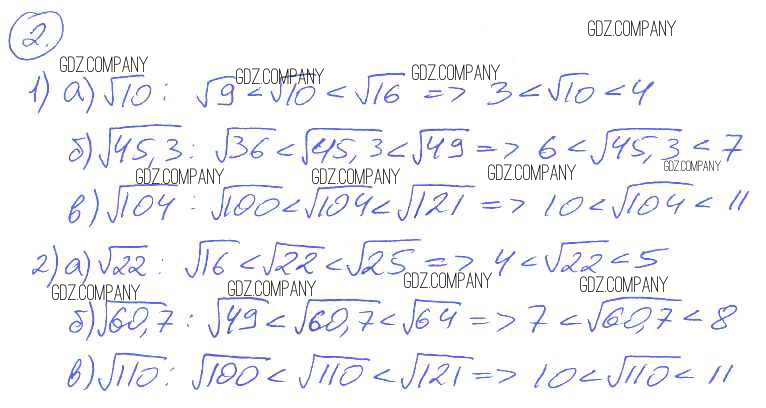 2.
GDZ.COMPANY
GDZ.COMPANY GDZ.COMPANY GDZ.COMPANY
1) а) √10 : √9 < √10 < √16 => 3 < √10 < 4
б) √45,3 : √36 < √45,3 < √49 => 6 < √45,3 < 7
GDZ.COMPANY GDZ.COMPANY GDZ.COMPANY GDZ.COMPANY
в) √104 : √100 < √104 < √121 => 10 < √104 < 11
2) а) √22 : √16 < √22 < √25 => 4 < √22 < 5
GDZ.COMPANY GDZ.COMPANY GDZ.COMPANY GDZ.COMPANY
б) √60,7 : √49 < √60,7 < √64 => 7 < √60,7 < 8
в) √110 : √100 < √110 < √121 => 10 < √110 < 11